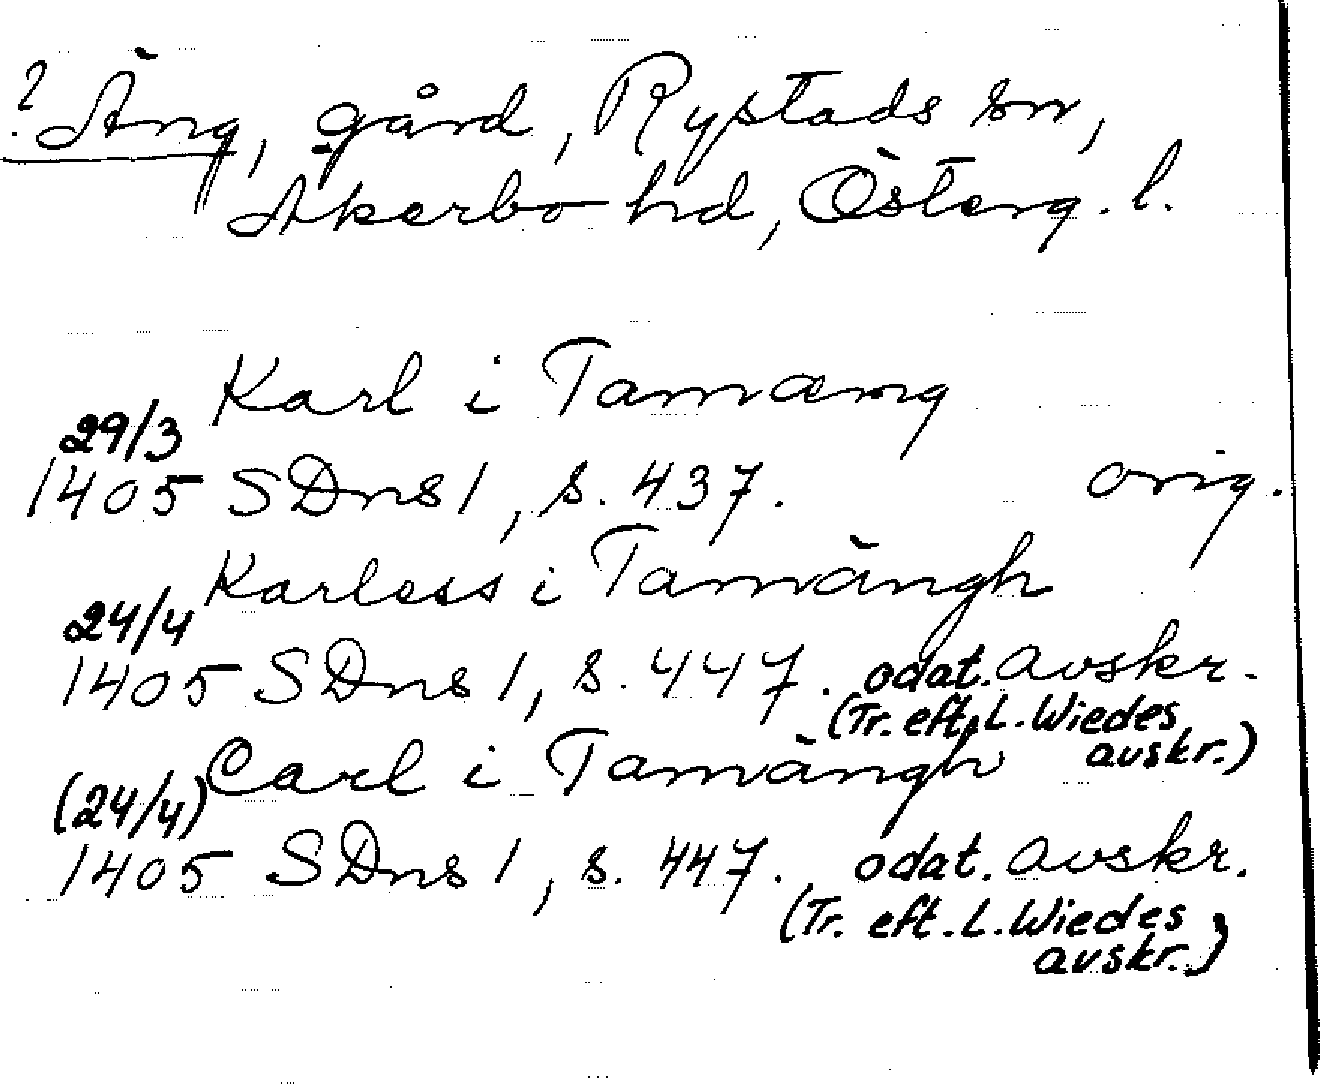 ? Äng, gård, Rystads sn,
Åkerbo hd, Österg. l.
Karl i Tamæng
29/3
1405 SDns 1, s. 437. orig.
Karless i Tamängh
24/4
1405 SDns 1, s. 447. odat. avskr.
(Tr. eft. L. Wiedes
avskr.)
Carl i Tamängh
(24/4)
1405 SDns 1, s. 447. odat. avskr.
(Tr. eft. L. Wiedes
avskr.)